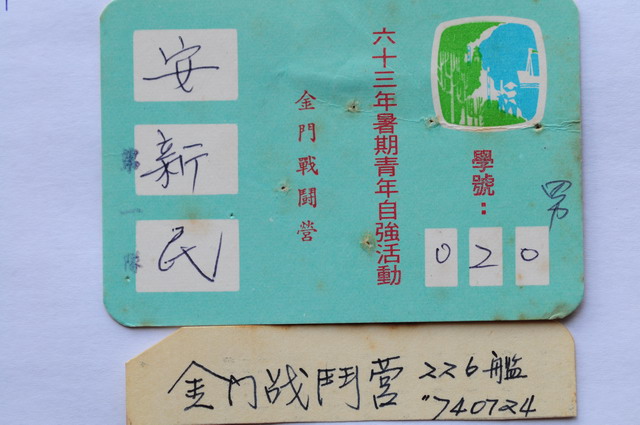 六十三年暑期青年自強活動
金門戰鬪營
學號：
020
男
安新民
第一隊
金门战鬥营 226艦
"740724